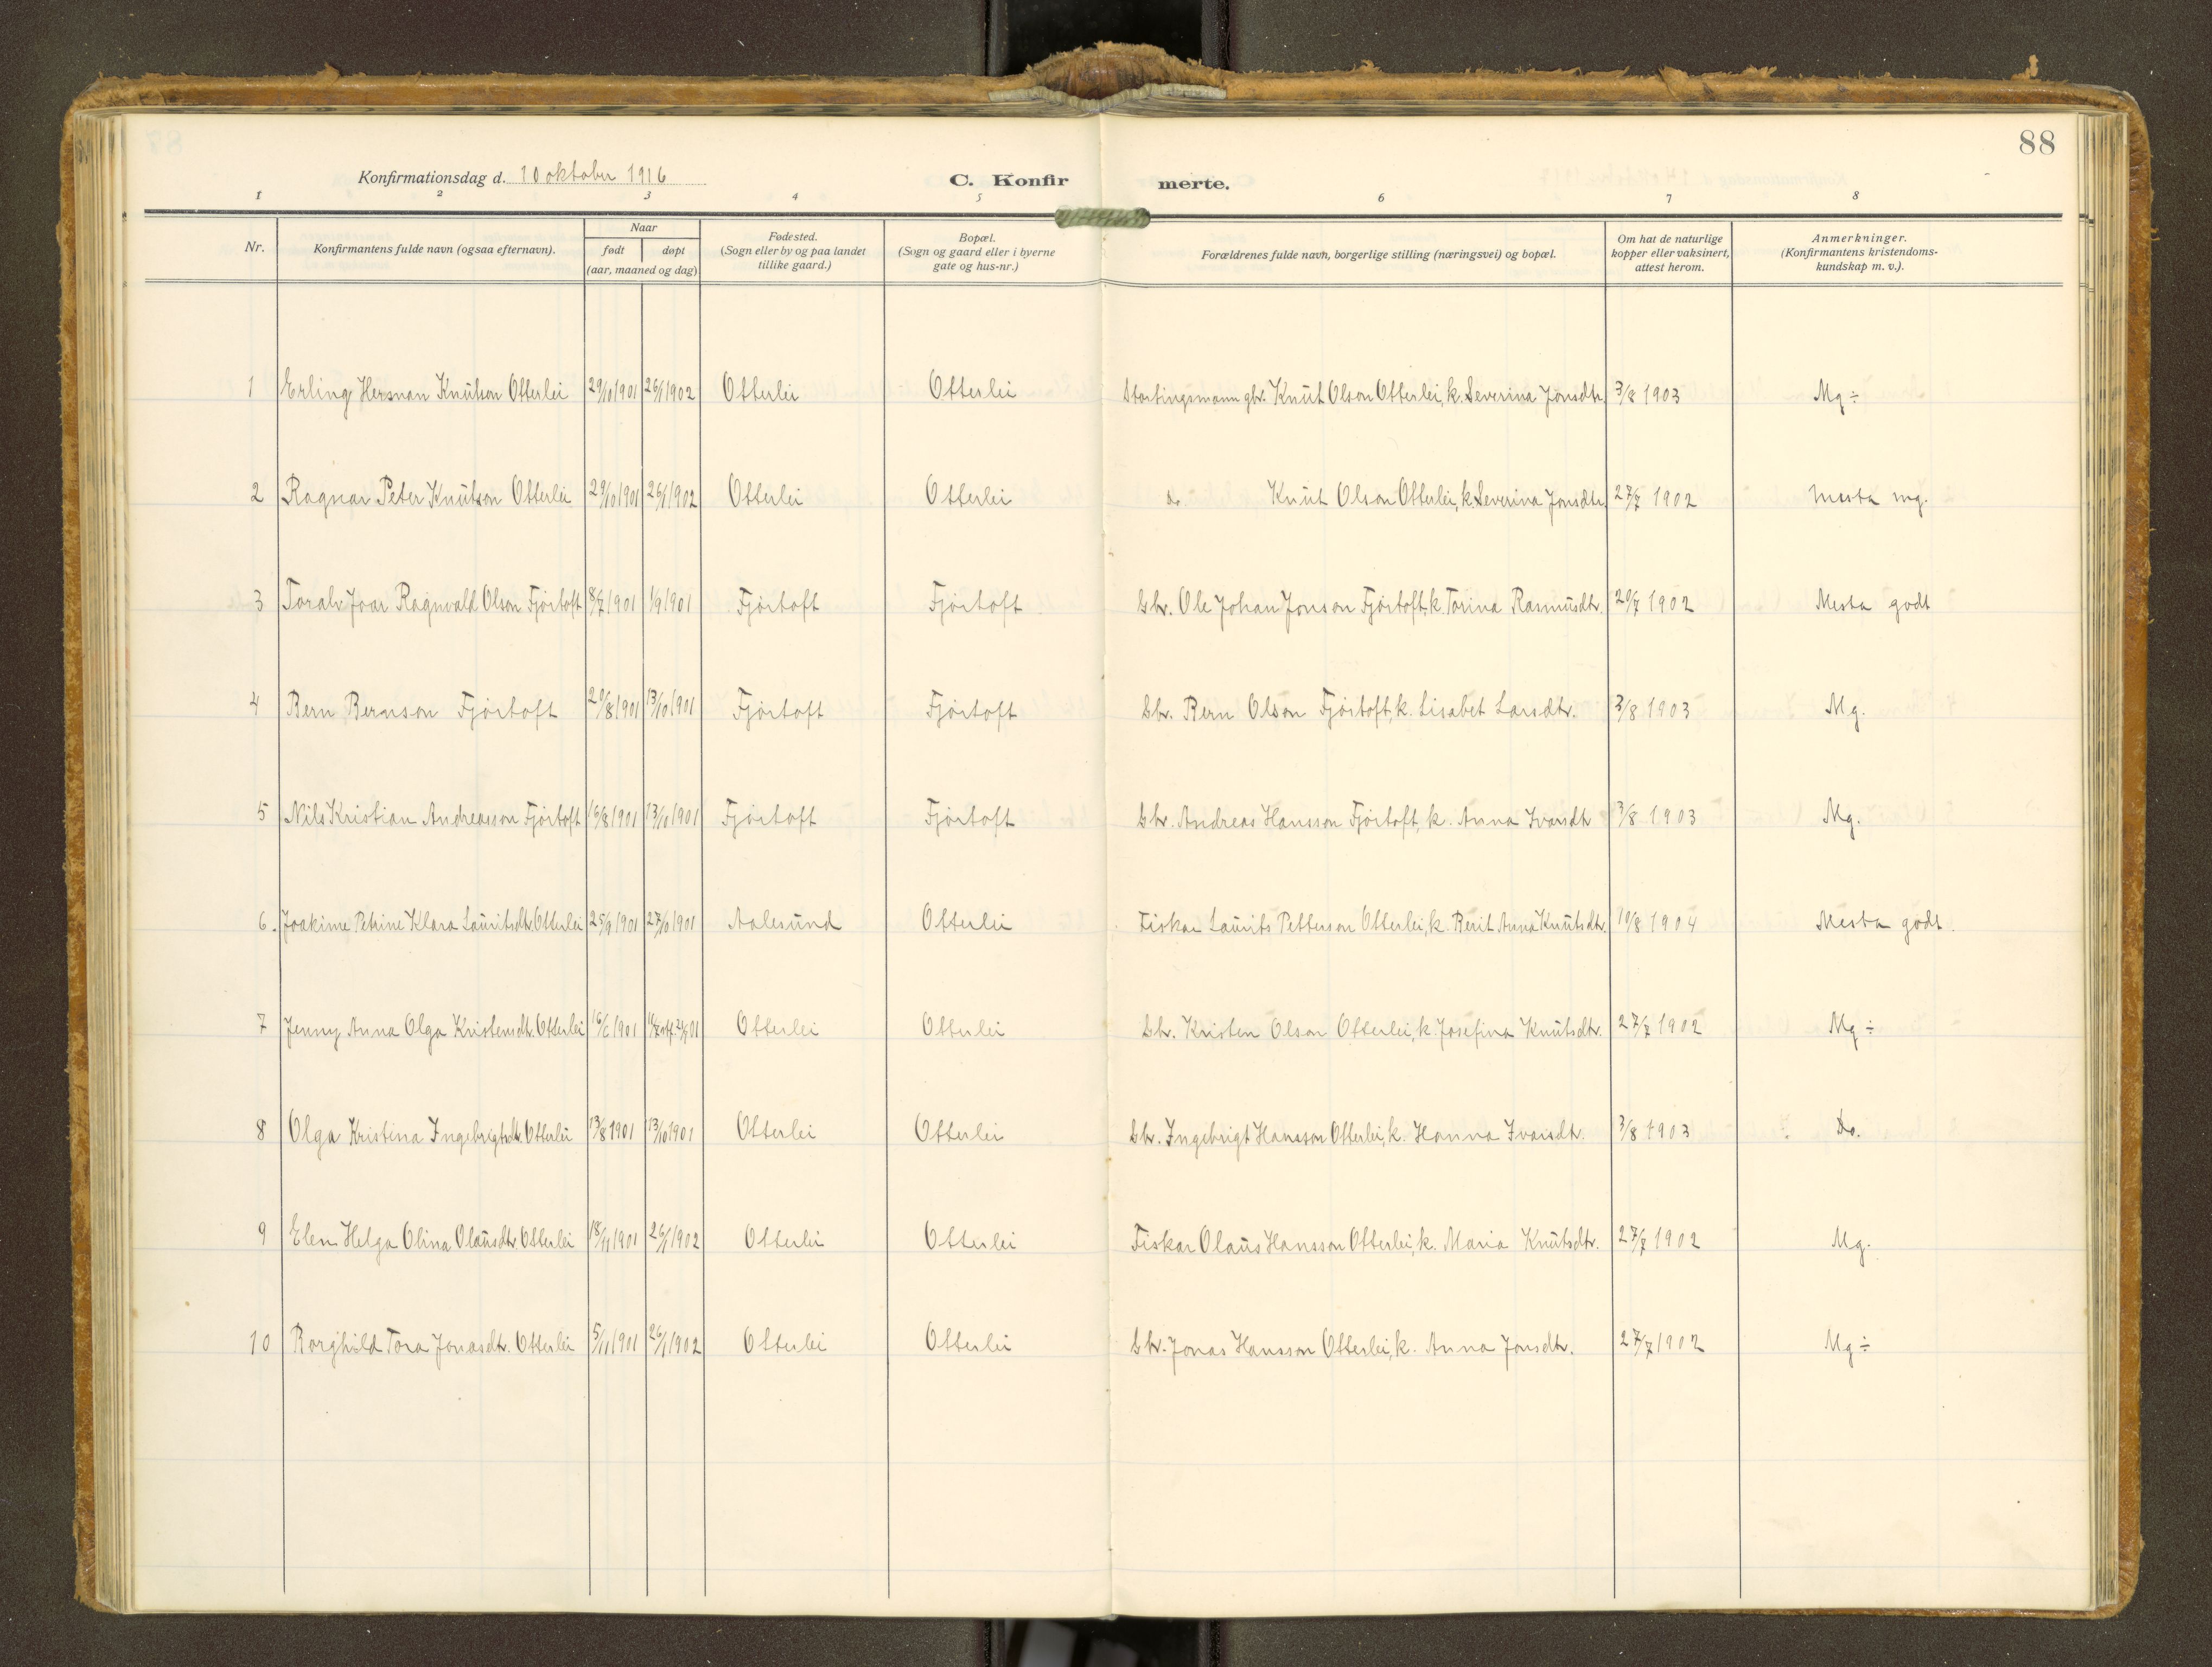 88
Konfirmationsdag d. 10 oktober 1916
C. Konfirmerte.
1 2 3 4 5 6 7 8
Nr. Konfirmantens fulde navn (ogsaa efternavn). Naar født døpt (aar, maaned og dag) Fødested. (Sogn eller by og paa landet tillike gaard.) Bopæl. (Sogn og gaard eller i byerne gate og hus-nr.) Forældrenes fulde navn, borgerlige stilling (næringsvei) og bopæl. Om hat de naturlige kopper eller vaksinert, attest herom. Anmerkninger. (Konfirmantens kristendoms-kundskap m. v.).
1 Erling Herman Knutson Otterlei 29/10 1901 26/1 1902 Otterlei Otterlei Stortingsmann gbr. Knut Olson Otterlei, k. Severina Jonsdtr. 3/8 1903 Mg ÷
2 Ragnar Peter Knutson Otterlei 29/10 1901 26/1 1902 Otterlei Otterlei do Knut Olson Otterlei, k. Severina Jonsdtr. 27/7 1902 Mesta mg.
3 Toralv Ivar Ragnvald Olson Fjörtoft 8/7 1901 1/9 1901 Fjörtoft Fjörtoft Gbr. Ole Johan Jonson Fjörtoft, k. Torina Rasmusdtr. 20/7 1902 Mesta godt
4 Bern Bernson Fjörtoft 29/8 1901 13/10 1901 Fjörtoft Fjörtoft Gbr. Bern Olson Fjörtoft, k. Lisabet Larsdtr. 3/8 1903 Mg.
5 Nils Kristian Andreasson Fjörtoft 16/8 1901 13/10 1901 Fjörtoft Fjörtoft Gbr. Andreas Hansson Fjörtoft, k. Anna Ivarsdtr 3/8 1903 Mg.
6. Joakime Petrine Klara Lauritsdtr. Otterlei 25/9 1901 27/10 1901 Aalesund Otterlei Fiskar Laurits Petterson Otterlei, k. Berit Anna Knutsdtr. 10/8 1904 Mesta godt.
7 Jenny Anna Olga Kristensdtr. Otterlei 16/6 1901 Otterlei Otterlei Gbr. Kristen Olson Otterlei, k Josefina Knutsdtr. 27/7 1902 Mg ÷
8 Olga Kristina Ingebrigtsdtr. Otterlei 13/8 1901 13/10 1901 Otterlei Otterlei Gbr. Ingebrigt Hansson Otterlei, k. Hanna Ivarsdtr. 3/8 1903 Do.
9 Elen Helga Olina Olausdtr. Otterlei 18/11 1901 26/1 1902 Otterlei Otterlei Fiskar Olaus Hansson Otterlei, k. Maria Knutsdtr. 27/7 1902 Mg.
10 Borghild Tora Jonasdtr. Otterlei 5/11 1901 26/1 1902 Otterlei Otterlei Gbr. Jonas Hansson Otterlei, k. Anna Jonsdtr. 27/7 1902 Mg ÷